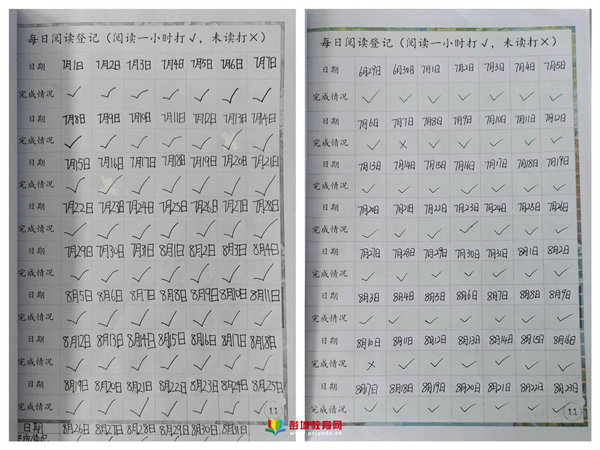 每日阅读登记（阅读一小时打√，未读打×）
日期 7月1日 7月2日 7月3日 7月4日 7月5日 7月6日 7月7日
完成情况 ✓ ✓ ✓ ✓ ✓ ✓ ✓
日期 7月8日 7月9日 7月10日 7月11日 7月12日 7月13日 7月14日
完成情况 ✓ ✓ ✓ ✓ ✓ ✓ ✓
日期 7月15日 7月16日 7月17日 7月18日 7月19日 7月20日 7月21日
完成情况 ✓ ✓ ✓ ✓ ✓ ✓ ✓
日期 7月22日 7月23日 7月24日 7月25日 7月26日 7月27日 7月28日
完成情况 ✓ ✓ ✓ ✓ ✓ ✓ ✓
日期 7月29日 7月30日 7月31日 8月1日 8月2日 8月3日 8月4日
完成情况 ✓ ✓ ✓ ✓ ✓ ✓ ✓
日期 8月5日 8月6日 8月7日 8月8日 8月9日 8月10日 8月11日
完成情况 ✓ ✓ ✓ ✓ ✓ ✓ ✓
日期 8月12日 8月13日 8月14日 8月15日 8月16日 8月17日 8月18日
完成情况 ✓ ✓ ✓ ✓ ✓ ✓ ✓
日期 8月19日 8月20日 8月21日 8月22日 8月23日 8月24日 8月25日
完成情况 ✓ ✓ ✓ ✓ ✓ ✓ ✓
11
日期 8月26日 8月27日 8月28日 8月29日 8月30日 8月31日
每日阅读登记（阅读一小时打√，未读打×）
日期 6月29日 6月30日 7月1日 7月2日 7月3日 7月4日 7月5日
完成情况 ✓ ✓ ✓ ✓ ✓ ✓ ✓
日期 7月6日 7月7日 7月8日 7月9日 7月10日 7月11日 7月12日
完成情况 ✓ × ✓ ✓ ✓ ✓ ✓
日期 7月13日 7月14日 7月15日 7月16日 7月17日 7月18日 7月19日
完成情况 ✓ ✓ ✓ ✓ ✓ ✓ ✓
日期 7月20日 7月21日 7月22日 7月23日 7月24日 7月25日 7月26日
完成情况 ✓ ✓ ✓ ✓ ✓ ✓ ✓
日期 7月27日 7月28日 7月29日 7月30日 7月31日 8月1日 8月2日
完成情况 ✓ ✓ ✓ ✓ ✓ ✓ ✓
日期 8月3日 8月4日 8月5日 8月6日 8月7日 8月8日 8月9日
完成情况 ✓ ✓ ✓ ✓ ✓ ✓ ✓
日期 8月10日 8月11日 8月12日 8月13日 8月14日 8月15日 8月16日
完成情况 × ✓ ✓ ✓ ✓ ✓ ✓
日期 8月17日 8月18日 8月19日 8月20日 8月21日 8月22日 8月23日
完成情况 ✓ ✓ ✓ ✓ ✓ ✓ ✓
11
彭城教育网